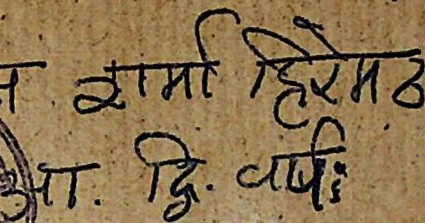 शर्मा हिरेमठ
आ. द्वि. वर्षः